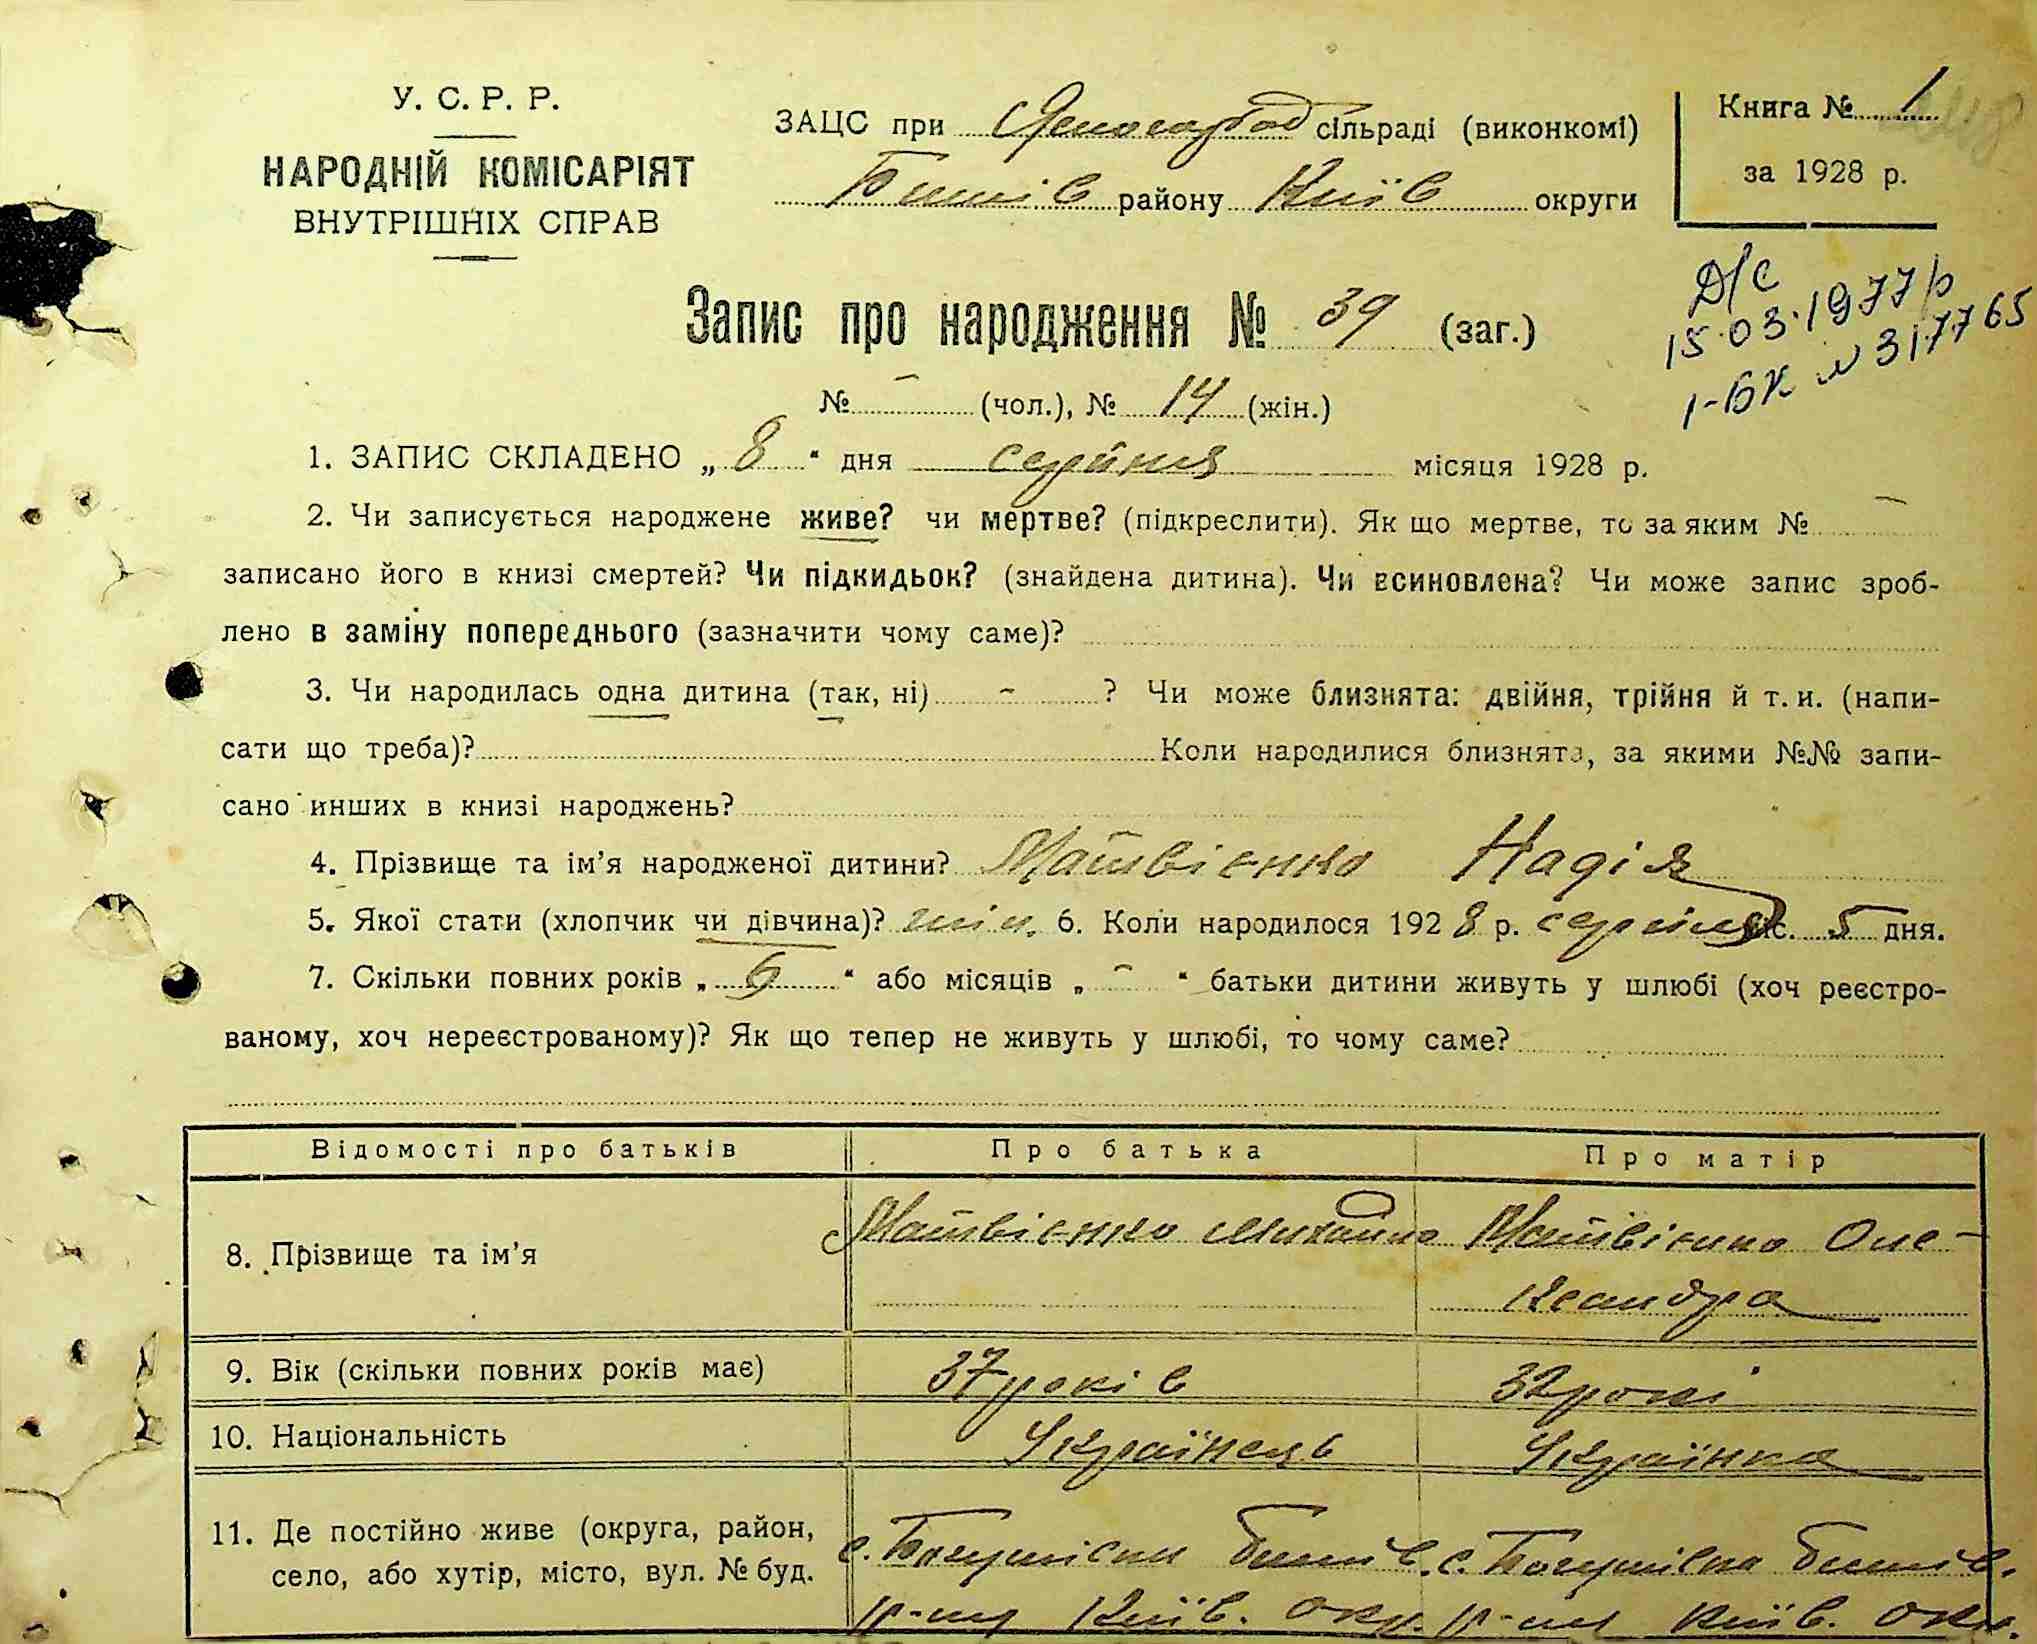 У. С. Р. Р.
НАРОДНІЙ КОМІСАРІЯТ
ВНУТРІШНІХ СПРАВ
ЗАЦС при Ясногород сільраді (виконкомі)
Бишів району Київ округи
Книга № 1
за 1928 р.
Д/С
15.03.1977р
І-БК № 317765
Запис про народження № 39 (заг.)
№ - (чол.), № 14 (жін.)
1. ЗАПИС СКЛАДЕНО „ 8 “ дня серпня місяця 1928 р.
2. Чи записується народжене живе? чи мертве? (підкреслити). Як що мертве, то за яким № -
записано його в книзі смертей? Чи підкидьок? (знайдена дитина). Чи всиновлена? Чи може запис зроб-
лено в заміну попереднього (зазначити чому саме)?
3. Чи народилась одна дитина (так, ні) - ? Чи може близнята: двійня, трійня й т. и. (напи-
сати що треба)? Коли народилися близнята, за якими №№ запи-
сано инших в книзі народжень?
4. Прізвище та ім’я народженої дитини? Матвієнко Надія
5. Якої стати (хлопчик чи дівчина)? жін. 6. Коли народилося 192 8 р. серпня міс. 5 дня.
7. Скільки повних років „ 6 “ або місяців „ - “ батьки дитини живуть у шлюбі (хоч реєстро-
ваному, хоч нереєстрованому)? Як що тепер не живуть у шлюбі, то чому саме?
Відомості про батьків Про батька Про матір
8. Прізвище та ім’я Матвієнко Михайло Матвієнко Оле-
ксандра
9. Вік (скільки повних років має) 37 років 32 роки
10. Національність Українець Українка
11. Де постійно живе (округа, район, с. Богушівки Бишів. с. Богушівки Бишів.
село, або хутір, місто, вул. № буд. р-ну Київ. окр. р-ну Київ. окр.